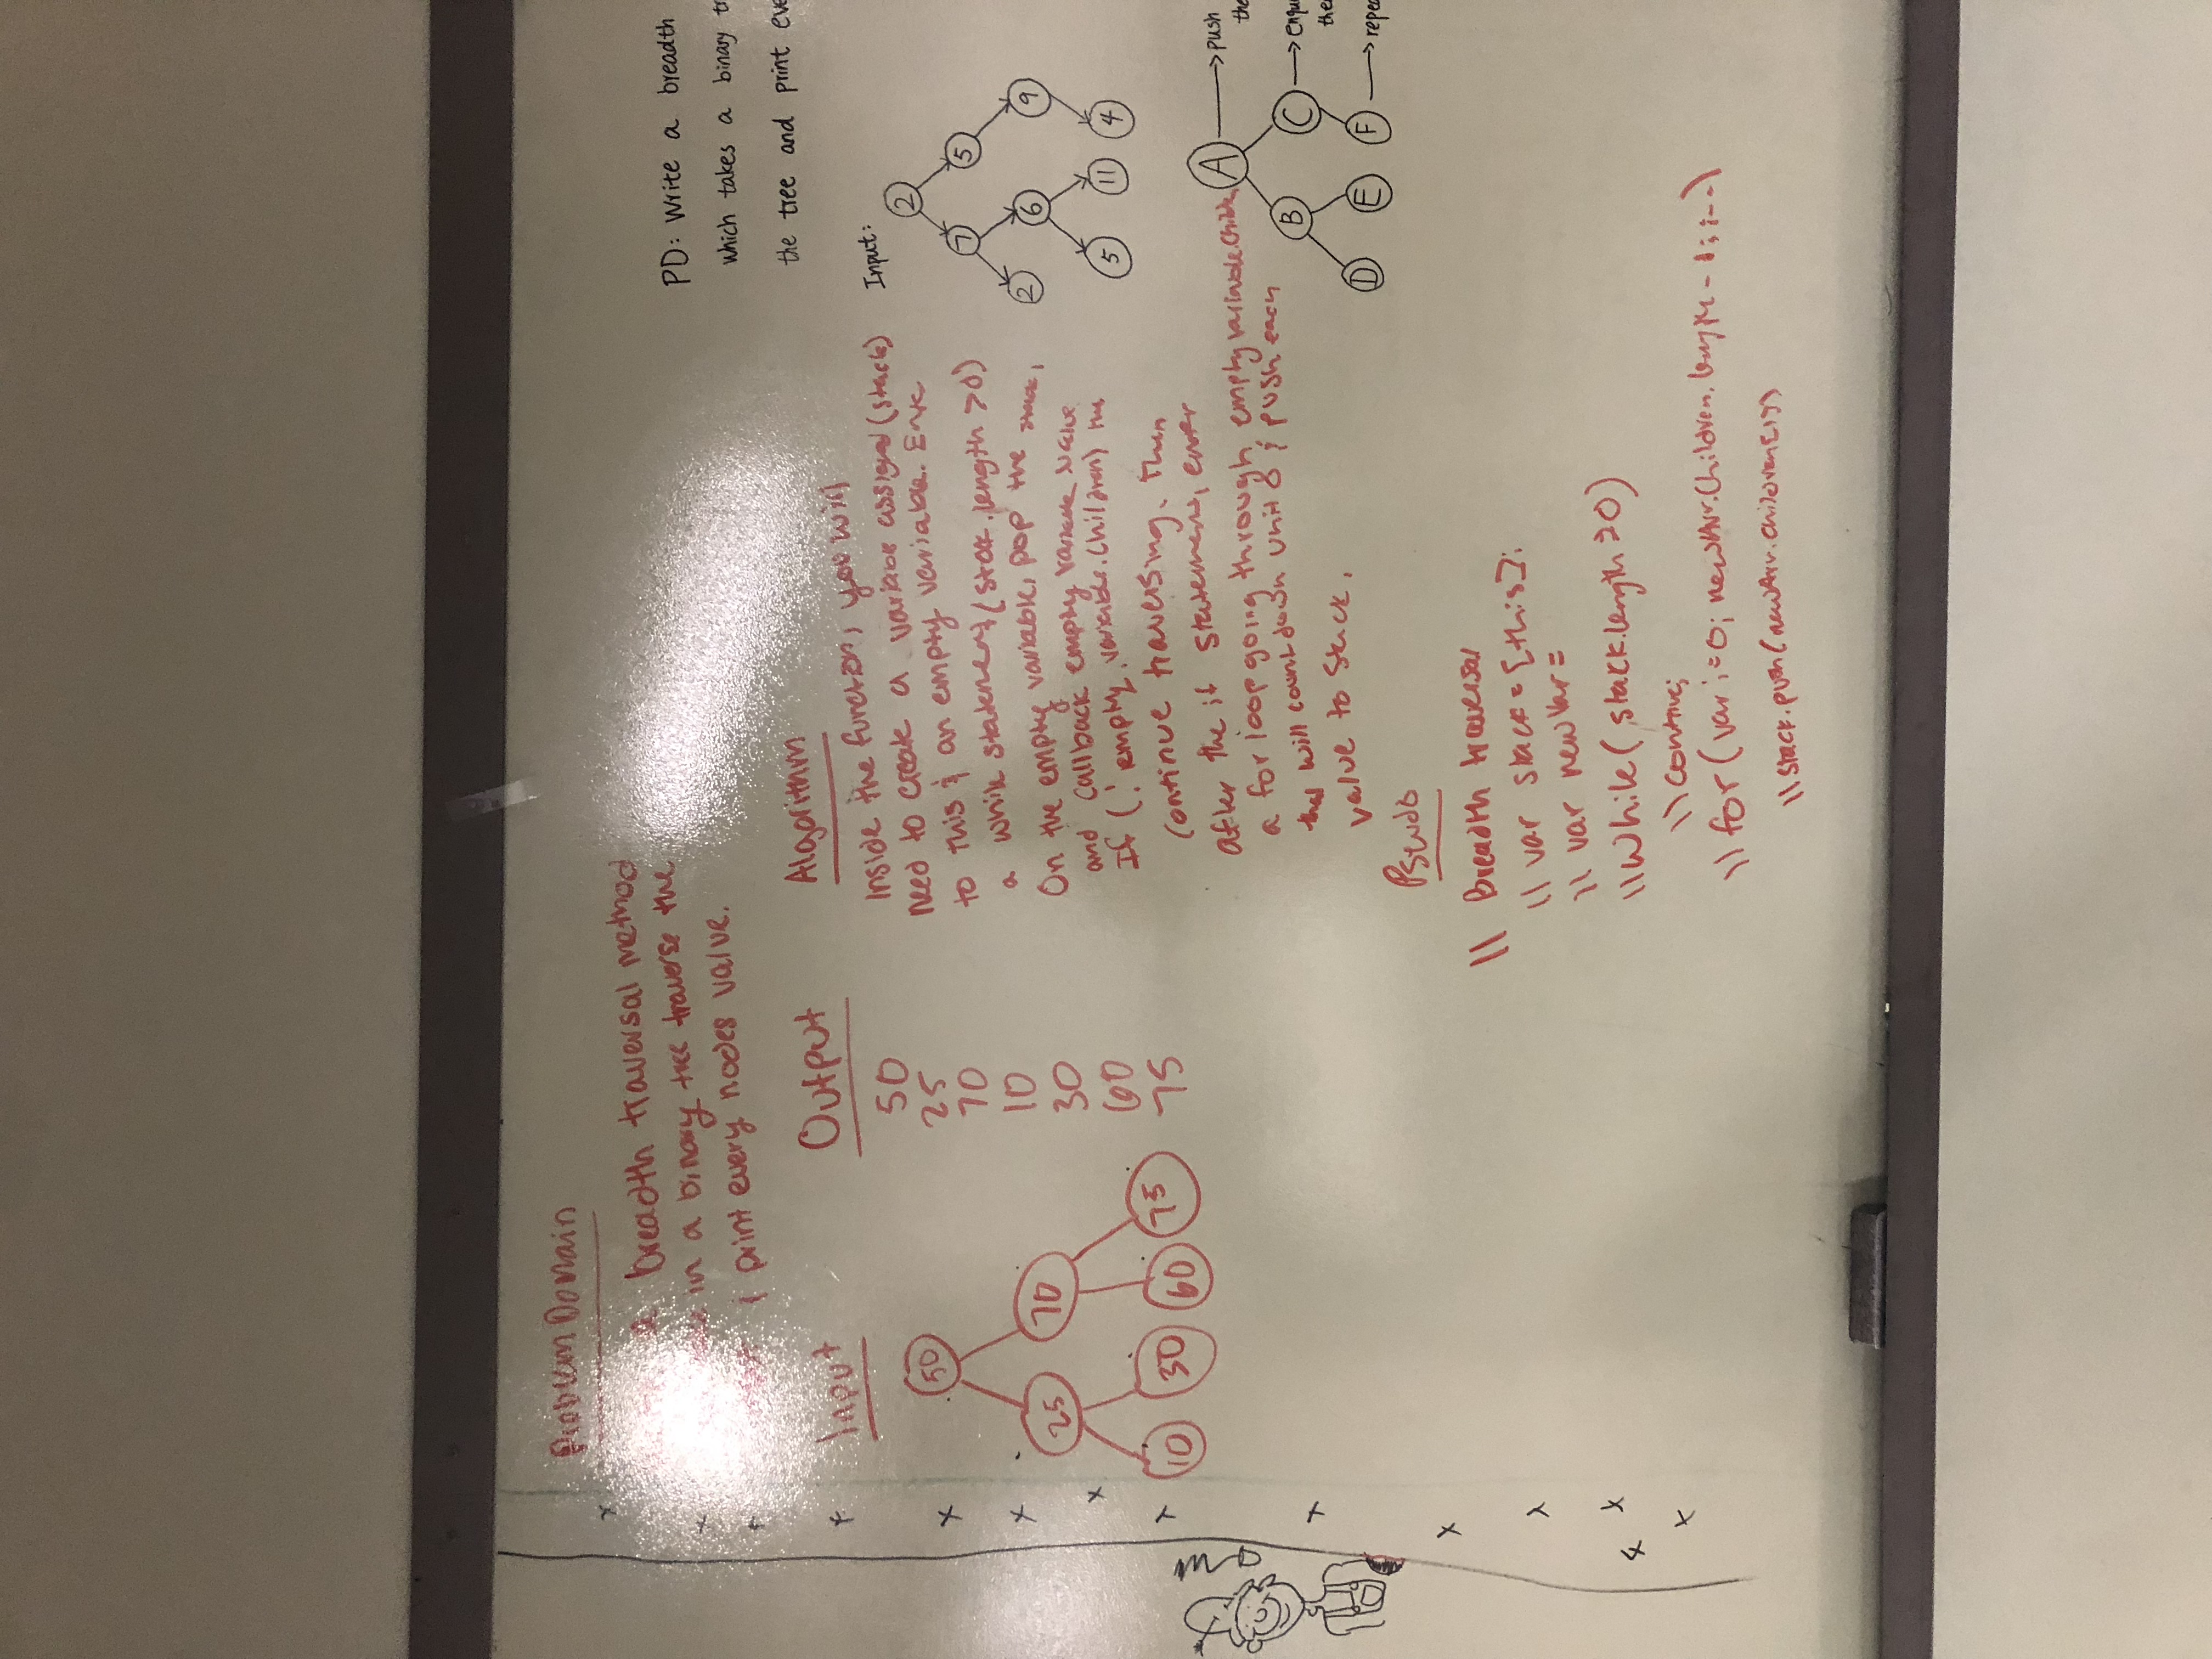 Problem Domain
a breadth traversal method
in a binary tree traverse the
& print every nodes value.
Input
50
25 70
10 30 60 75
Output
50
25
70
10
30
60
75
Algorithm
Inside the function, you will
need to create a variable assigned (stack)
to this & an empty variable.
a while statement (stack.length >0)
On the empty variable, pop the stack,
and callback empty variable value
If (!empty variable.children) the
continue traversing. Then
after the if statement, enter
a for loop going through empty variable.
that will count down until 0 & push each
value to stack.
Pseudo
\\ Breadth traversal
\\ var stack = [this];
\\ var newVar =
\\ While ( stack.length >0)
\\ continue;
\\ for ( var i=0; newArr.Children.length - 1; i--)
\\ stack.push (newArr.children[i])
PD: Write a breadth
which takes a binary
the tree and print
Input:
2
7 5
2 6 9
5 11 4
A push
the
B C
the
D E F